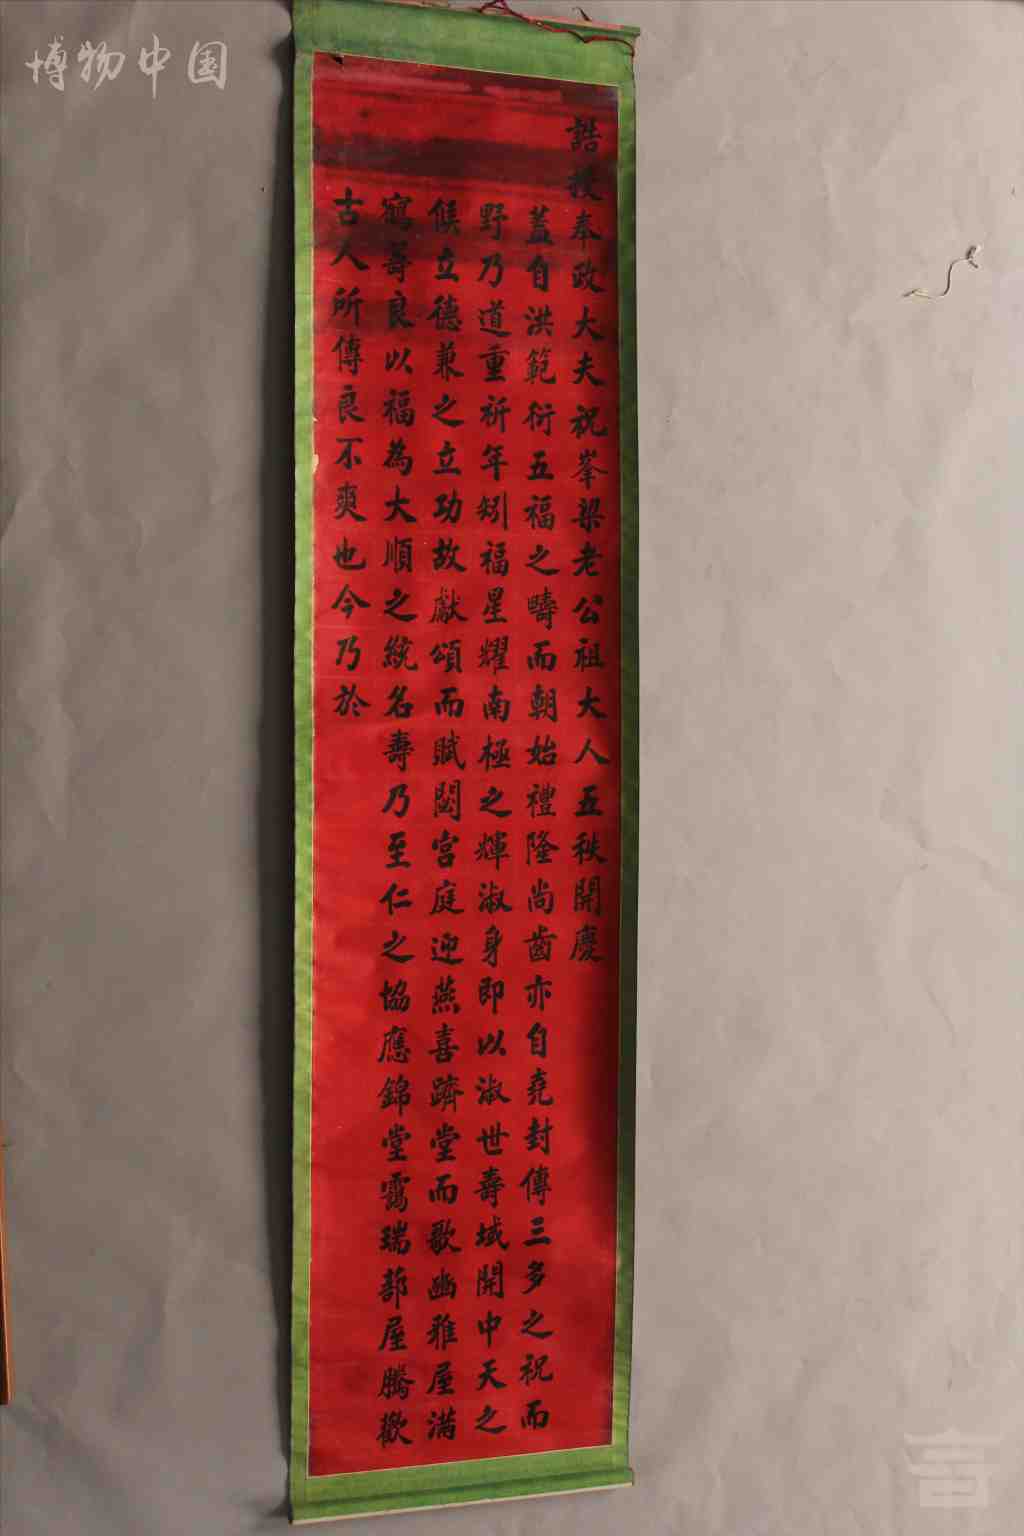 博物中国
誥授奉政大夫祝峯梁老公祖大人五秩開慶
蓋自洪範衍五福之疇而朝始禮隆尚齒亦自堯封傳三多之祝而
野乃道重祈年矧福星耀南極之輝淑身即以淑世壽域開中天之
候立德兼之立功故獻頌而賦閟宮庭迎燕喜躋堂而歌豳雅屋滿
鶴壽良以福為大順之統名壽乃至仁之協應錦堂靄瑞蔀屋騰歡
古人所傳良不爽也今乃於